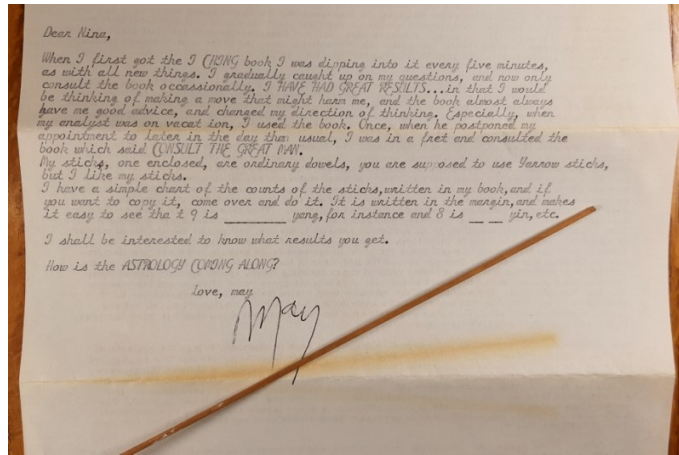 Dear Nina,
When I first got the I CHING book I was dipping into it every five minutes,
as with all new things. I gradually caught up on my questions, and now only
consult the book occassionally. I HAVE HAD GREAT RESULTS...in that I would
be thinking of making a move that might harm me, and the book almost always
gave me good advice, and changed my direction of thinking. Especially, when
my analyst was on vacat ion, I used the book. Once, when he postponed my
appointment to later in the day than usual, I was in a fret and consulted the
book which said CONSULT THE GREAT MAN.
My sticks, one enclosed, are ordinary dowels, you are supposed to use Yarrow sticks,
but I like my sticks.
I have a simple chart of the counts of the sticks,written in my book,and if
you want to copy it, come over and do it. It is written in the margin,and makes
it easy to see tha t 9 is _________ yang,for instance and 8 is __ __ yin,etc.
I shall be interested to know what results you get.
How is the ASTROLOGY COMING ALONG?
love, may
May